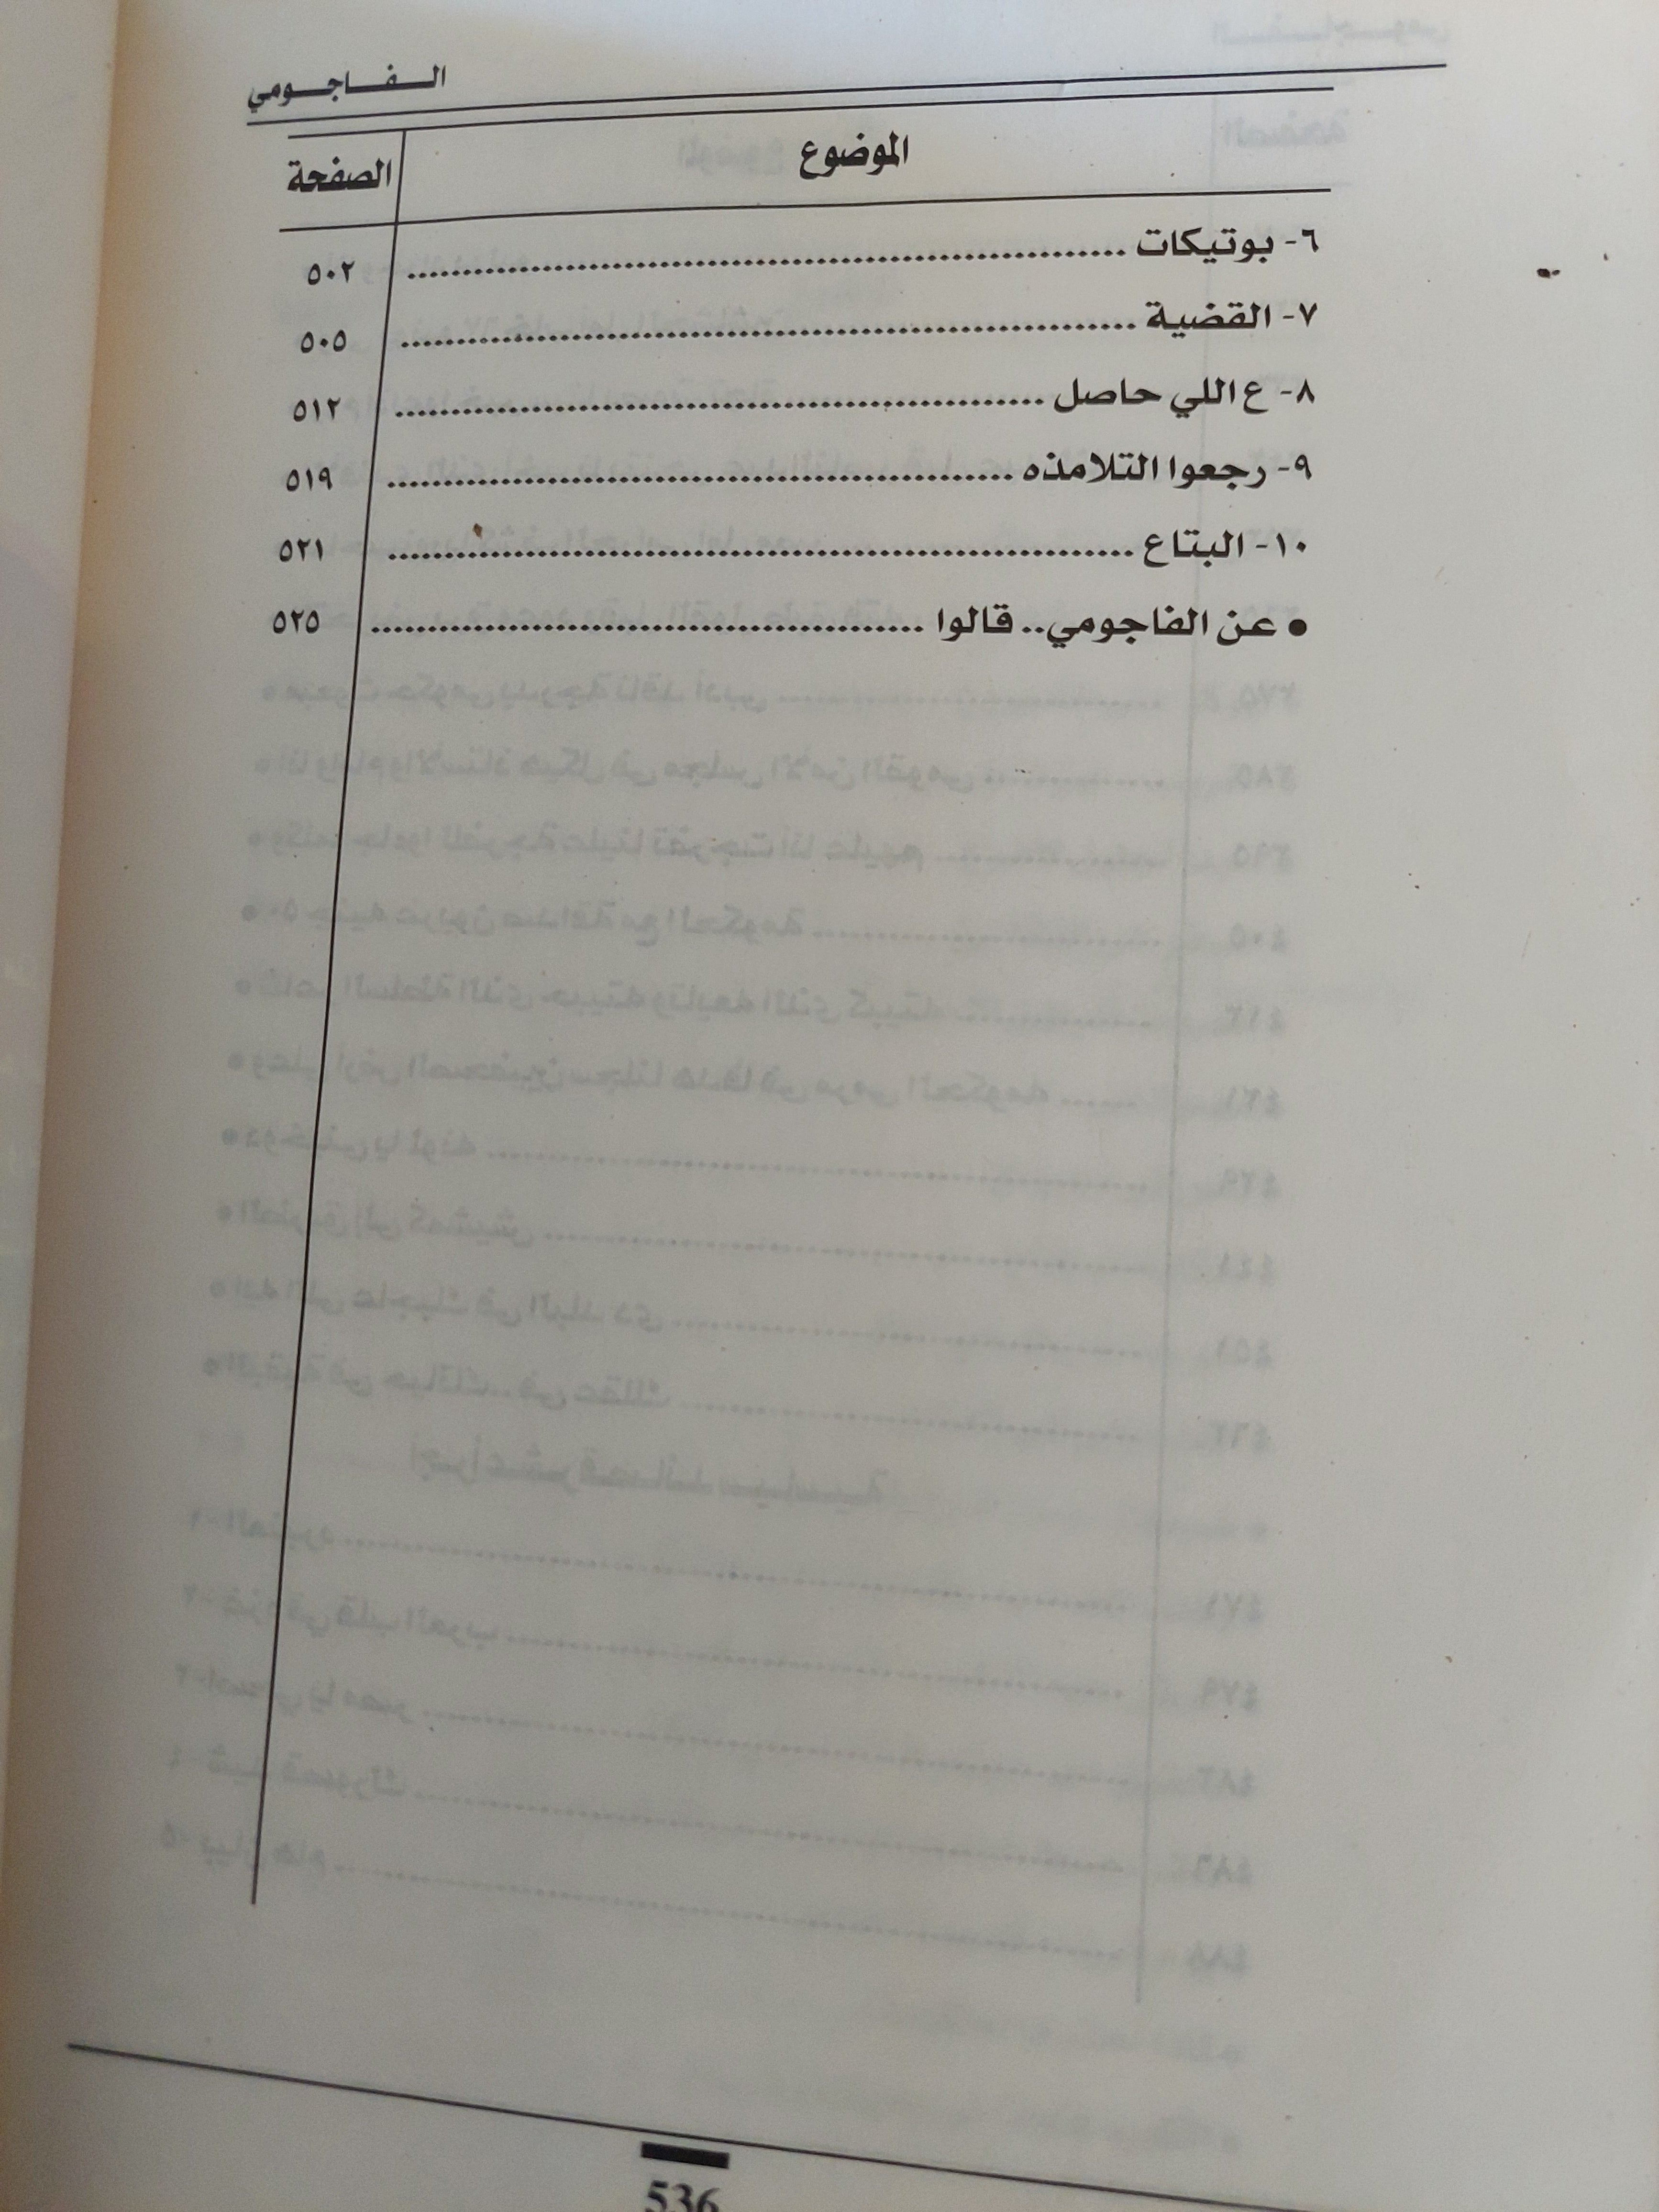 الفاجومي
الموضوع الصفحة
٦- بوتيكات .......... ٥٠٢
٧- القضية .......... ٥٠٥
٨- ع اللي حاصل .......... ٥١٢
٩- رجعوا التلامذه .......... ٥١٩
١٠- البتاع .......... ٥٢١
● عن الفاجومي.. قالوا .......... ٥٢٥
536